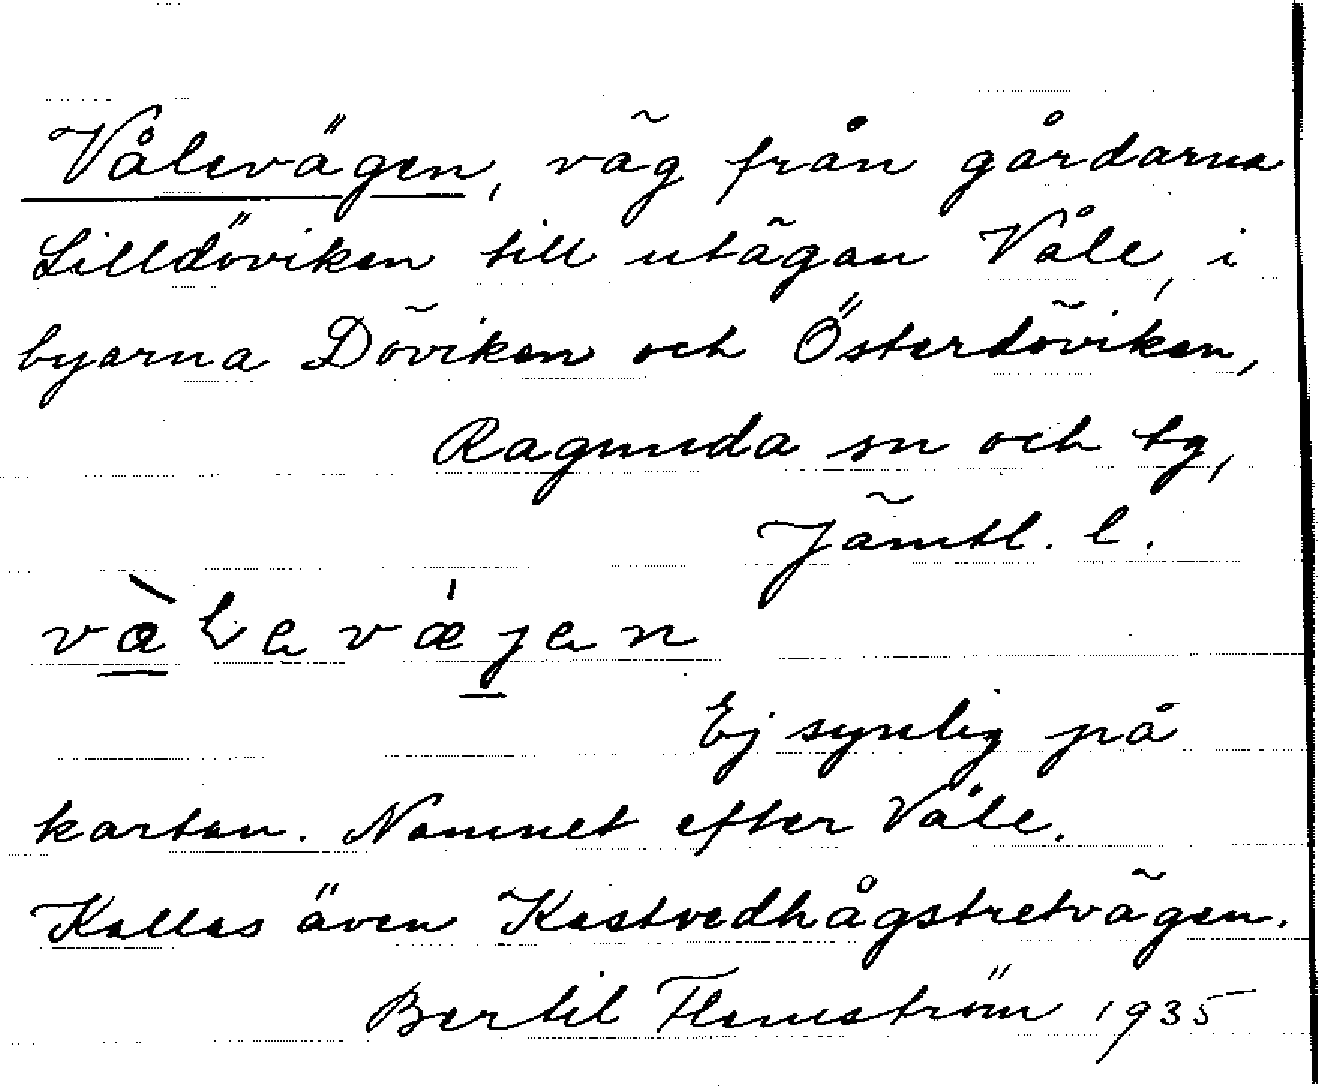 Vålevägen, väg från gårdarna
Lilldöviken till utägan Våle, i
byarna Döviken och Österdöviken,
Ragunda sn och tg,
Jämtl. l.
væ̀ɭevæ̍jen
Ej synlig på
kartan. Namnet efter Våle.
Kallas även Kastvedhågstretvägen.
Bertil Flemström 1935